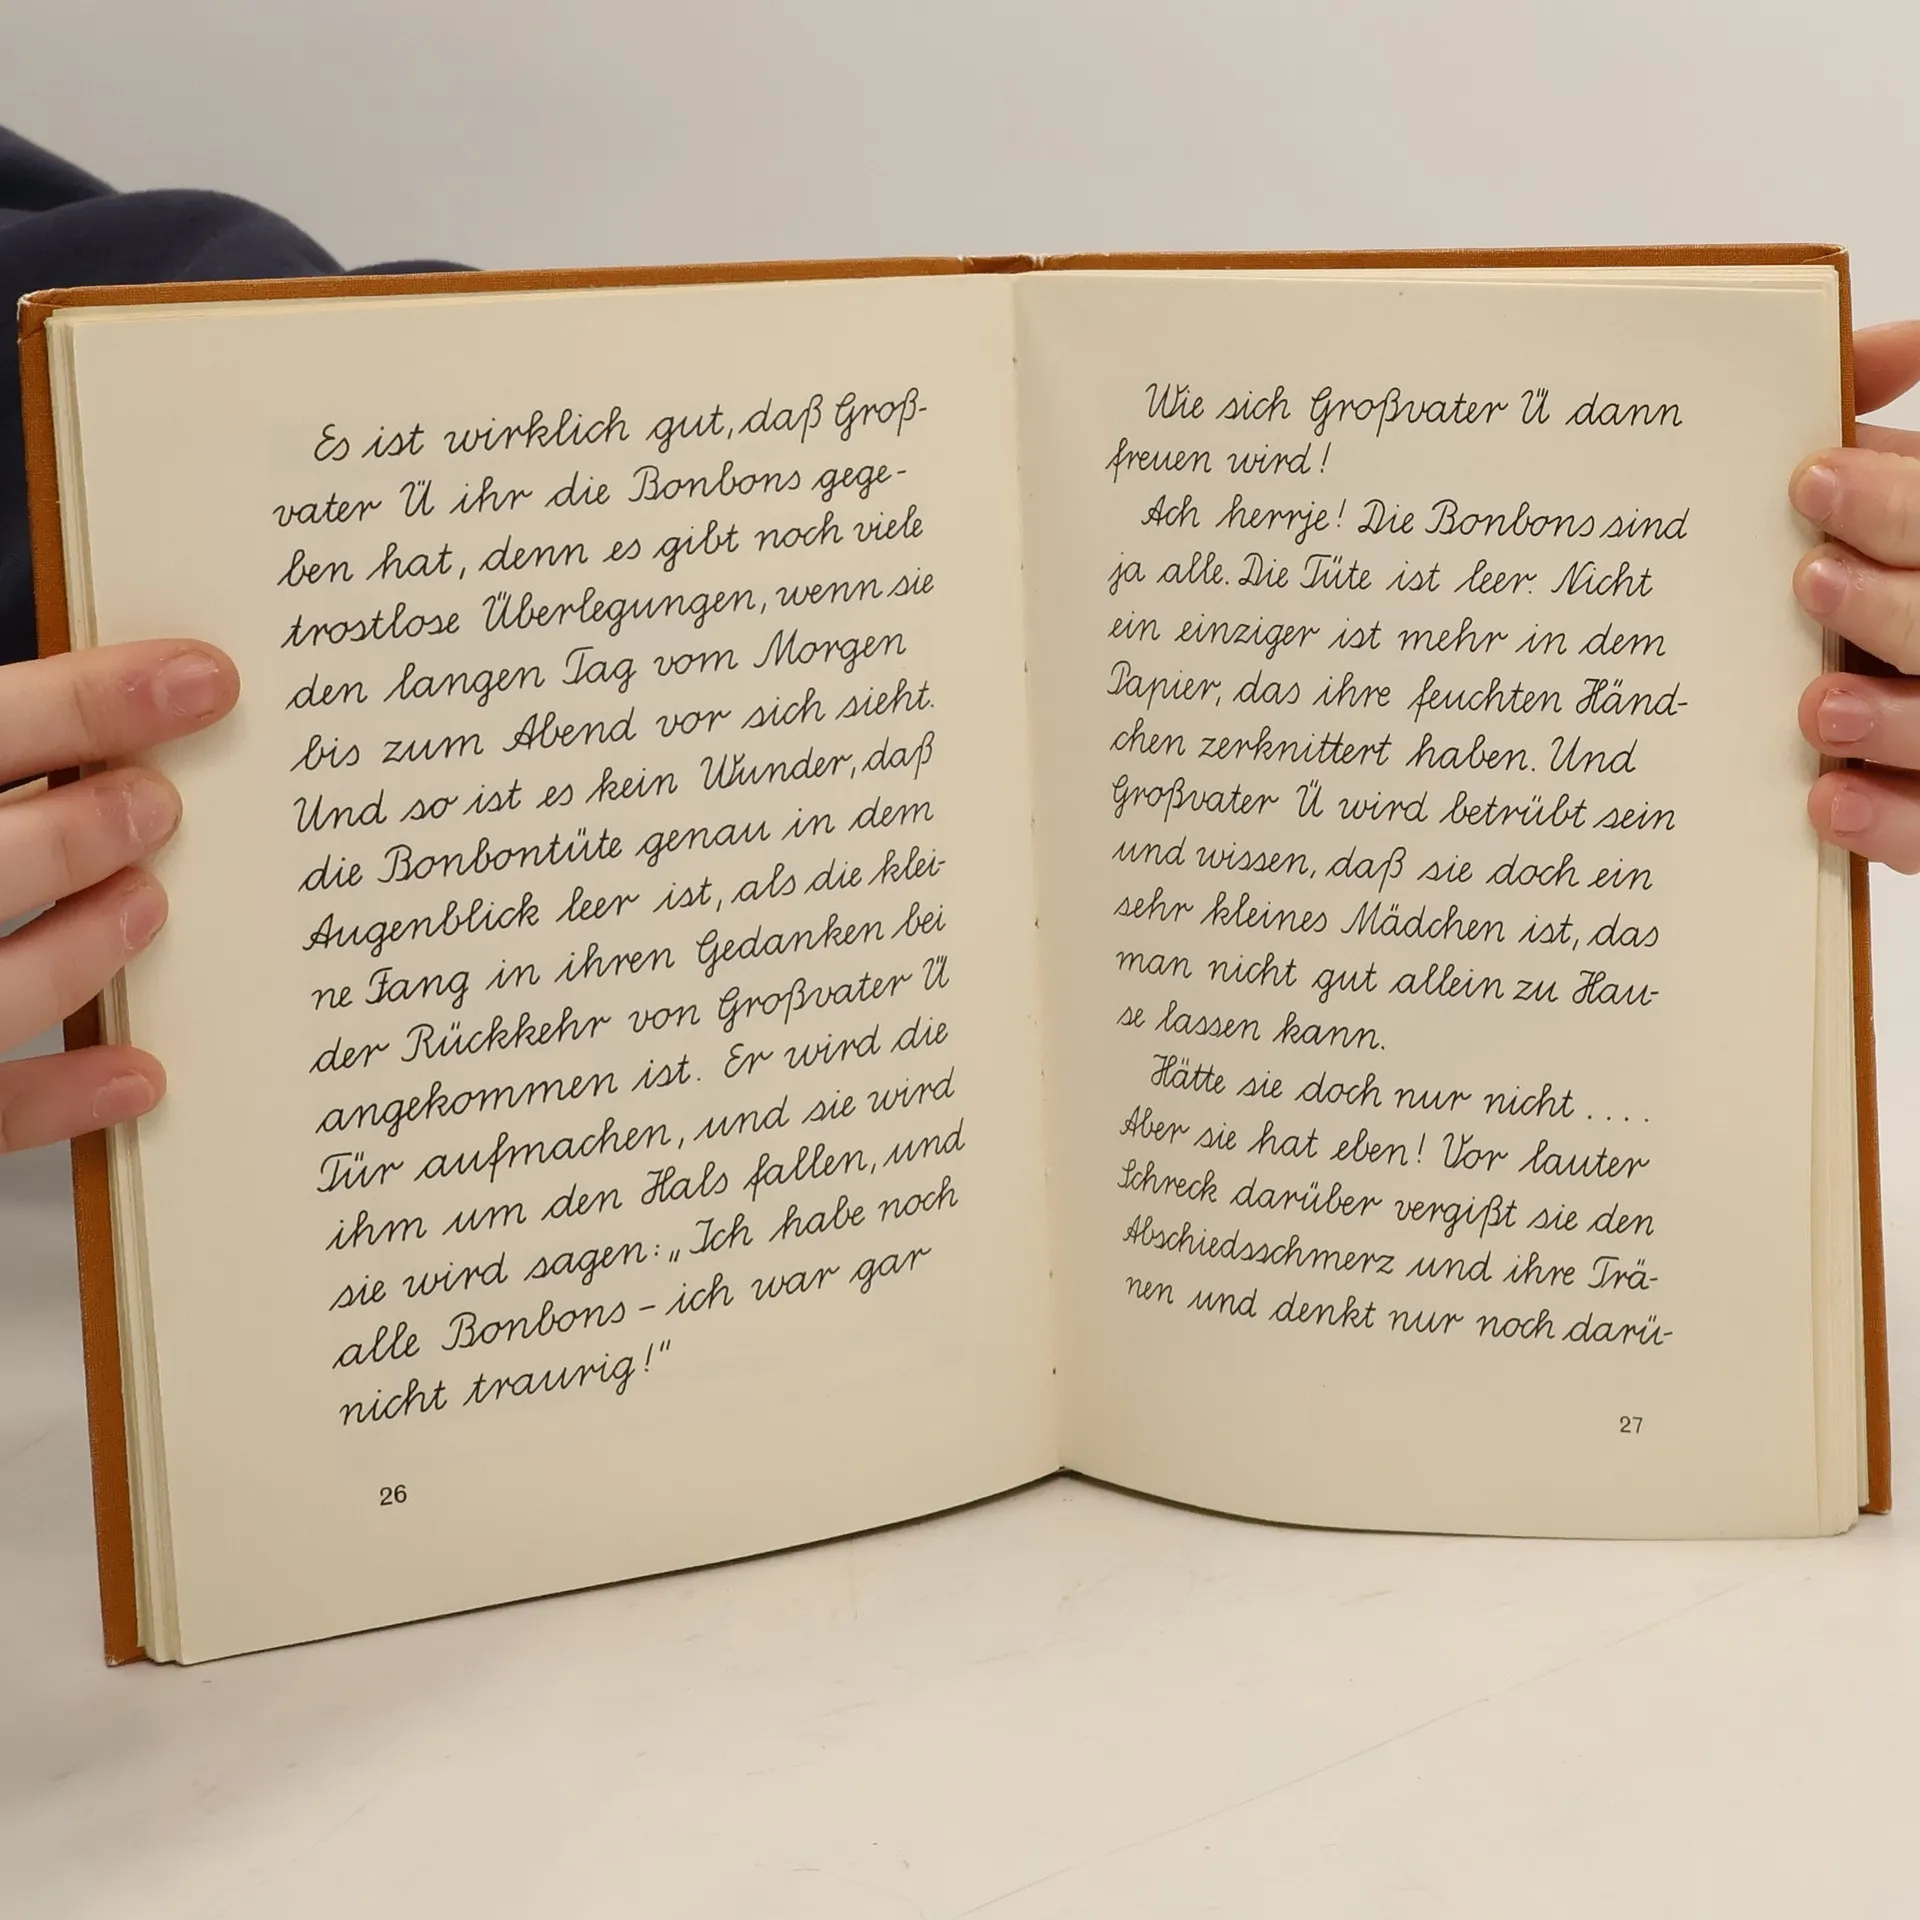 Es ist wirklich gut, daß Groß-
vater Ü ihr die Bonbons gege-
ben hat, denn es gibt noch viele
trostlose Überlegungen, wenn sie
den langen Tag vom Morgen
bis zum Abend vor sich sieht.
Und so ist es kein Wunder, daß
die Bonbontüte genau in dem
Augenblick leer ist, als die klei-
ne Fang in ihren Gedanken bei
der Rückkehr von Großvater Ü
angekommen ist. Er wird die
Tür aufmachen, und sie wird
ihm um den Hals fallen, und
sie wird sagen: „Ich habe noch
alle Bonbons – ich war gar
nicht traurig!"
26
Wie sich Großvater Ü dann
freuen wird!
Ach herrje! Die Bonbons sind
ja alle. Die Tüte ist leer. Nicht
ein einziger ist mehr in dem
Papier, das ihre feuchten Händ-
chen zerknittert haben. Und
Großvater Ü wird betrübt sein
und wissen, daß sie doch ein
sehr kleines Mädchen ist, das
man nicht gut allein zu Hau-
se lassen kann.
Hätte sie doch nur nicht ....
Aber sie hat eben! Vor lauter
Schreck darüber vergißt sie den
Abschiedsschmerz und ihre Trä-
nen und denkt nur noch darü-
27